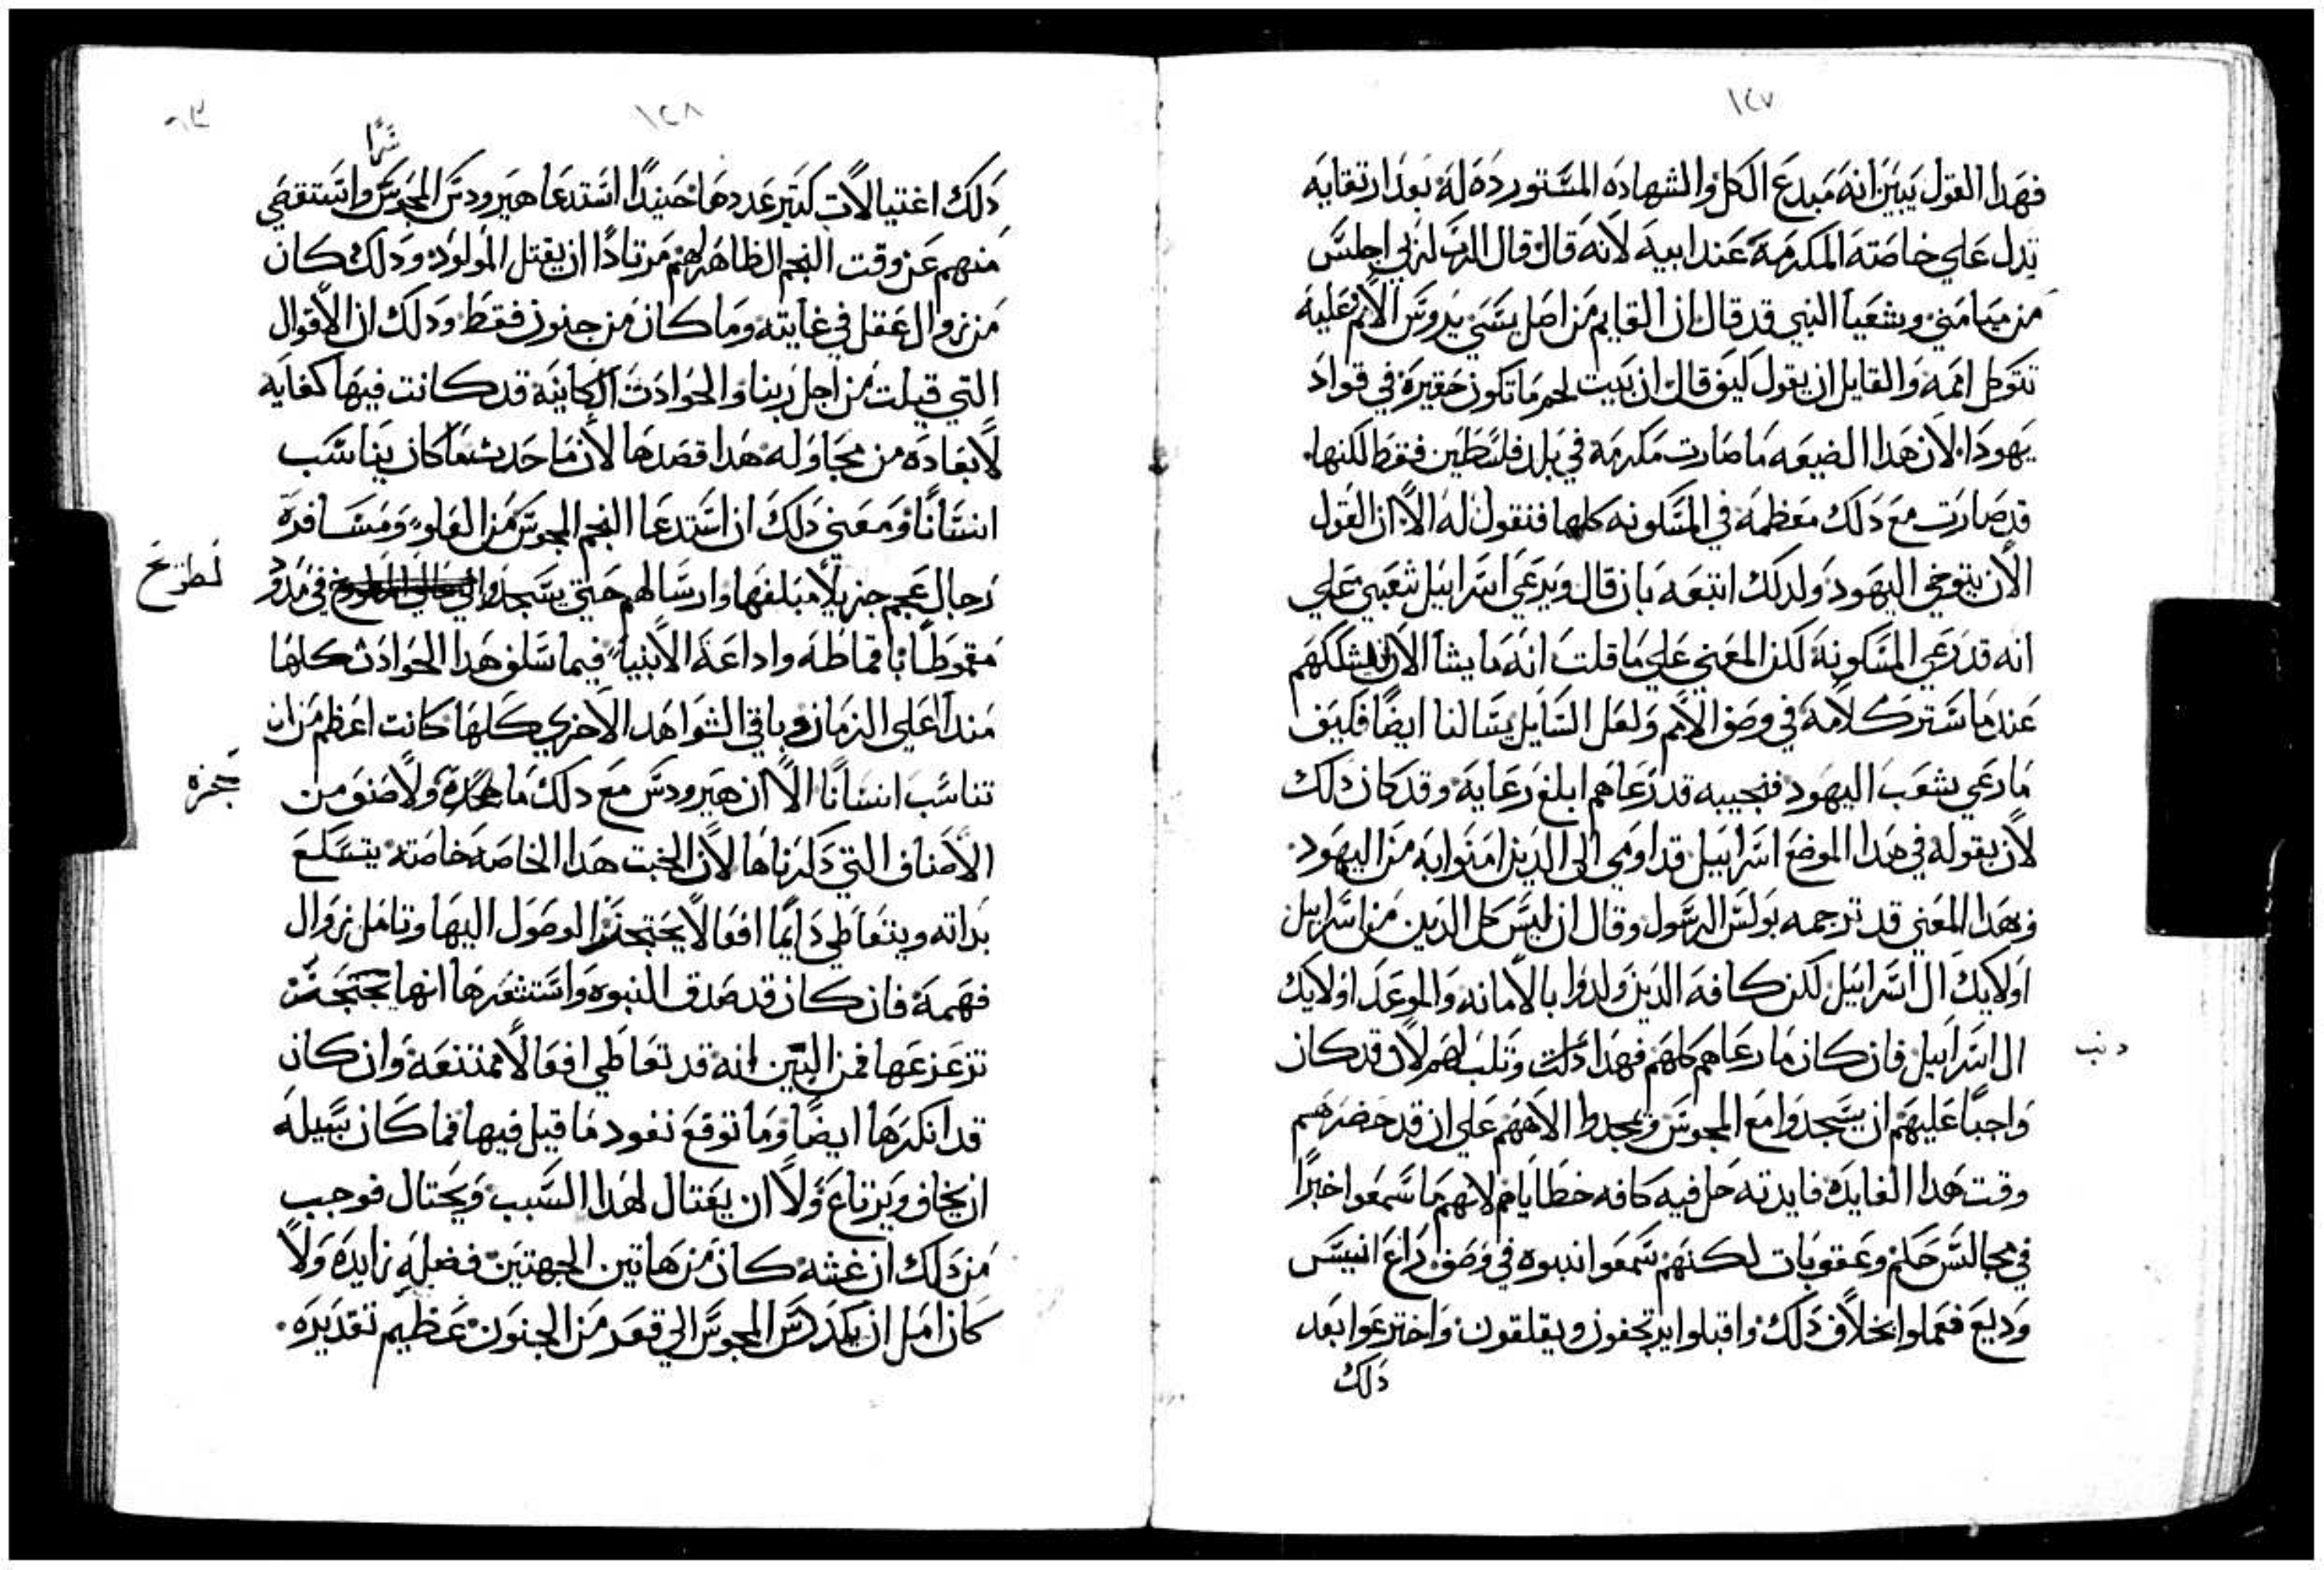 ١٢٧
فهدا القول يبين انه مبدع الكل والشهاده المستورده له بعد ارتقايه
تدل علي خاصته المكرمه عند ابيه لانه قال قال الرب لربي اجلس
من ميامني ويشعيا النبي قد قال ان القايم من اصل يسي يروس الامم عليه
تتوكل امم والقايل ان يقول كيف قال ان بيت لحم ما تكون حقيره في قواد
يهودا لان هدا الضيعه ما صارت مكرمه في بلد فلسطين فقط لكنها
قد صارت مع دلك معظمه في المسكونه كلها فنقول له الا ان القول
الان يتوخي اليهود ولدلك اتبعه بان قال ويرعي اسراييل شعبي علي
انه قد رعي المسكونة لكن المعني علي ما قلت انه ما يشا الان يشككهم
عند ما ستر كلامه في وصف الامم ولعل السايل يسالنا ايضا فكيف
ما رعي شعب اليهود فنجيبه قد رعاهم ابلغ رعاية وقد كان دلك
لان بقوله في هدا الموضع اسراييل قد اومي الي الدين امنوا به من اليهود
وبهدا المعني قد ترجمه بولس الرسول وقال ان ليس كل الدين من اسراييل
اولايك ال اسراييل لكن كافه الدين ولدوا بالامانه والموعد اولايك
ال اسراييل فان كان ما رعاهم كلهم فهدا وتلب لهم لان قد كان
واجبا عليهم ان يسجدوا مع المجوس ويمجدوا الاههم علي ان قد حضرهم
وقت هدا الفايده فايدته حل فيه كافه خطاياهم لانهم ما سمعوا خبرا
في مجالس حكم وعقوبات لكنهم سمعوا نبوه في وصف راع انيس
وديع فعملوا بخلاف دلك واقبلوا يرتجفون ويقلقون واخترعوا بعد
دلك
١٢٨
دلك اغتيالات كتير عددها حنيدا استدعا هيرودس المجوس واستقصي
سرا
منهم عن وقت النجم الظاهر لهم مرتادا ان يقتل المولود ودلك كان
من زوال عقل في غايته وما كان من جنون فقط ودلك ان الاقوال
التي قيلت من اجل ربنا والحوادت الكاينة قد كانت فيها كفايه
لابعاده من محاوله هدا قصدها لان ما حدث ما كان يناسب
انسانا ومعني دلك ان استدعا النجم المجوس من العلو ومسافرة
رجال عجم جزيلا مبلغها وارسالهم حتي يسجدوا في مدود
لطريح
مقموطا باقماطه واداعة الانبيا فيما سلف هدا الحوادث كلها
مند اعلي الزمان وباقي الشواهد الاخري كلها كانت اعظم من ان
تناسب انسانا الا ان هيرودس مع دلك ما ولا صنف من
حجزه
الاصناف التي دكرناها لان الخبت هدا الخاصه خاصته يتسكع
بداته ويتعاطي دايما افعالا الوصول اليها وتامل زوال
فهمه فان كان قد صدق النبوه واستشعرها انها
تزعزعها فمن البين انه قد تعاطي افعالا ممتنعة وان كان
قد انكرها ايضا وما توقع نفود ما قيل فيها فما كان سبيله
ان يخاف ويرتاع ولا ان يغتال لهدا السبب ويحتال فوجب
من دلك ان غشه كان من هاتين الجهتين فضله زايده ولا
كان امل ان يكدر المجوس الي قعر من الجنون عظيم تقديره